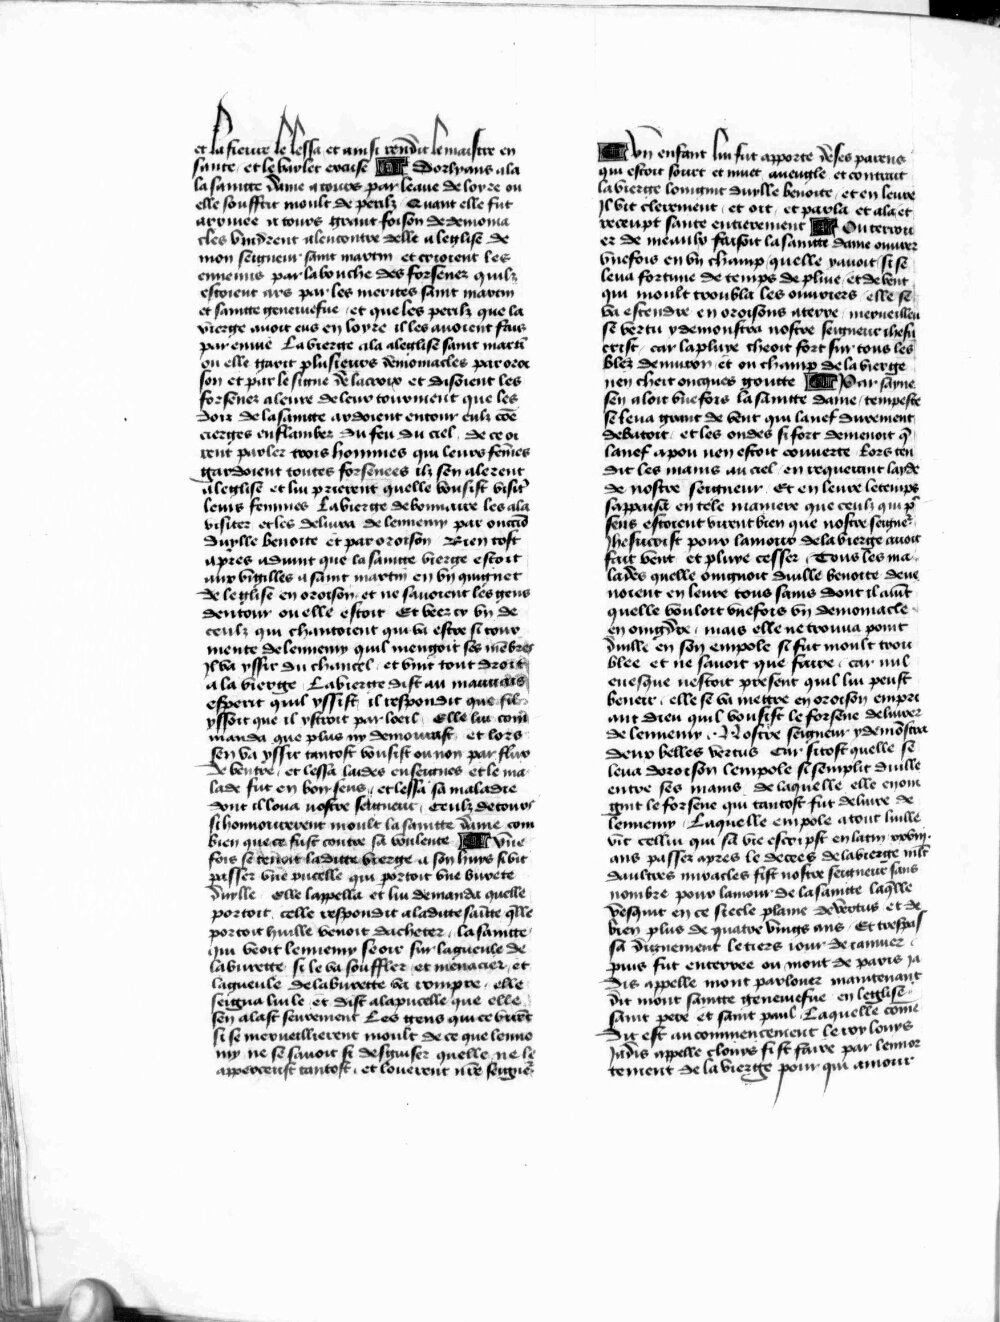 et la fieure le lessa et ainsi rendit le maistre en
sante et le varlet excuse Dorlyans ala
la saincte dame a tours par leaue de loyre ou
elle souffrit moult de perilz Quant elle fut
arriuee a tours grant foison de demonia
cles vindrent alencontre delle a leglise de
mon seigneur saint martin et crioient les
ennemis par la bouche des forsenez quilz
estoient ars par les merites saint martin
et saincte geneuiefue et que les perilz que la
vierge auoit eus en loyre il les auoient fais
par enuie La vierge ala a leglise saint martin
ou elle garit plusieurs demoniacles par oroi
son et par le signe de la croix et disoient les
forsenez a leure de leur tourment que les
dois de la saincte ardoient entour eulz cōe
cierges enflambez du feu du ciel de ce oi
rent parler trois hommes qui leurs fēmes
gardoient toutes forsenees ilz sen alerent
a leglise et lui prierent quelle vousist visiter
leurs femmes La vierge debonnaire les ala
visiter et les deliura de lennemy par onction
duylle benoite et par oroison Bien tost
apres aduint que la saincte vierge estoit
aux vigilles a saint martin en vn quignet
de leglise en oroison et ne sauoient les gens
dentour ou elle estoit Et veez cy vn de
ceulz qui chantoient qui va estre si tour
mente de lennemy quil mengoit ses mēbres
Il va yssir du chancel et vint tout droit
a la vierge La vierge dist au mauuais
esperit quil yssist il respondit que sil
yssoit que il ystroit par loeil Elle lui com
manda que plus ny demourast et lors
sen va yssir tantost vousist ou non par flux
de ventre et lessa laides enseignes et le ma
lade fut en bon sens et lessa sa maladie
dont il loua nostre seigneur Ceulz de tours
si honnourerent moult la saincte dame com
bien que ce fust contre sa voulente Vne
fois se tenoit laditte vierge a son huys si vit
passer vne pucelle qui portoit vne burete
duylle Elle lappella et lui demanda quelle
portoit celle respondit a laditte saīcte qlle
portoit huille venoit dacheter la saincte
qui veoit lennemy seoir sur la gueule de
la burette si le va souffler et menacier et
la gueule de la burette va rompre elle
seigna luile et dist a la pucelle que elle
sen alast seurement Les gens qui ce virēt
si se merueillierent moult de ce que lenne
my ne se sauoit si desguiser quelle ne le
apperceust tantost et louerent nr̄e seigne
Vn enfant lui fut apporte de ses parens
qui estoit sourt et muet aueugle et contrait
la vierge loingnit duylle benoite et en leure
Il vit clerement et oit et parla et ala et
receupt sante entierement Ou terrou
er de meaulx faisoit la saincte dame ouurer
vnefois en vn champ quelle y auoit si se
leua fortune de temps de pluie et de vent
qui moult troubla les ouuriers elle se
va estendre en oroisons a terre merueilleu
se vertu y demonstra nostre seigneur ihesu
crist car la pluye cheoit fort sur tous les
blez denuiron et ou champ de la vierge
nen cheit oncques goutte Par sayne
sen aloit vnefois la saincte dame tempeste
se leua grant de vent qui la nef durement
debatoit et les ondes si fort demenoit q̄
la nef a pou nen estoit couuerte Lors ten
dit les mains au ciel en requerant layde
de nostre seigneur Et en leure le temps
sappaisa en tele maniere que ceulz qui p̄
sens estoient virent bien que nostre seigne
Ihesucrist pour lamour de la vierge auoit
fait vent et pluye cesser Tous les ma
lades quelle oingnoit duille benoite deue
noient en leure tous sains dont il auīt
quelle vouloit vnefois vn demoniacle
en oingdre mais elle ne trouua point
duille en son empole si fut moult trou
blee et ne sauoit que faire car nul
euesque nestoit present quil lui peust
beneir elle se va mettre en oroison empri
ant dieu quil vousist le forsene deliurer
de lennemy Nostre seigneur y demōstra
deux belles vertus Car si tost quelle se
leua doroison lempole si semplit duille
entre ses mains de laquelle elle enoin
gnit le forsene qui tantost fut deliure de
lennemy Laquelle empole a tout luille
vit cellui qui sa vie escripst en latin xviii.
ans passez apres le deces de la vierge mlt
daultres miracles fist nostre seigneur sans
nombre pour lamour de la saincte laqlle
vesquit en ce siecle plaine de vertus et de
bien plus de quatre vings ans Et trespas
sa dignement le tiers iour de ianuier
puis fut enterree ou mont de paris ia
dis appelle mont parlouer maintenant
dit mont saincte geneuiefue en leglise
saint pere et saint paul Laquelle cōme
dit est au commencement le roy louys
Jadis appelle clouys fist faire par lennor
tement de la vierge pour qui amour